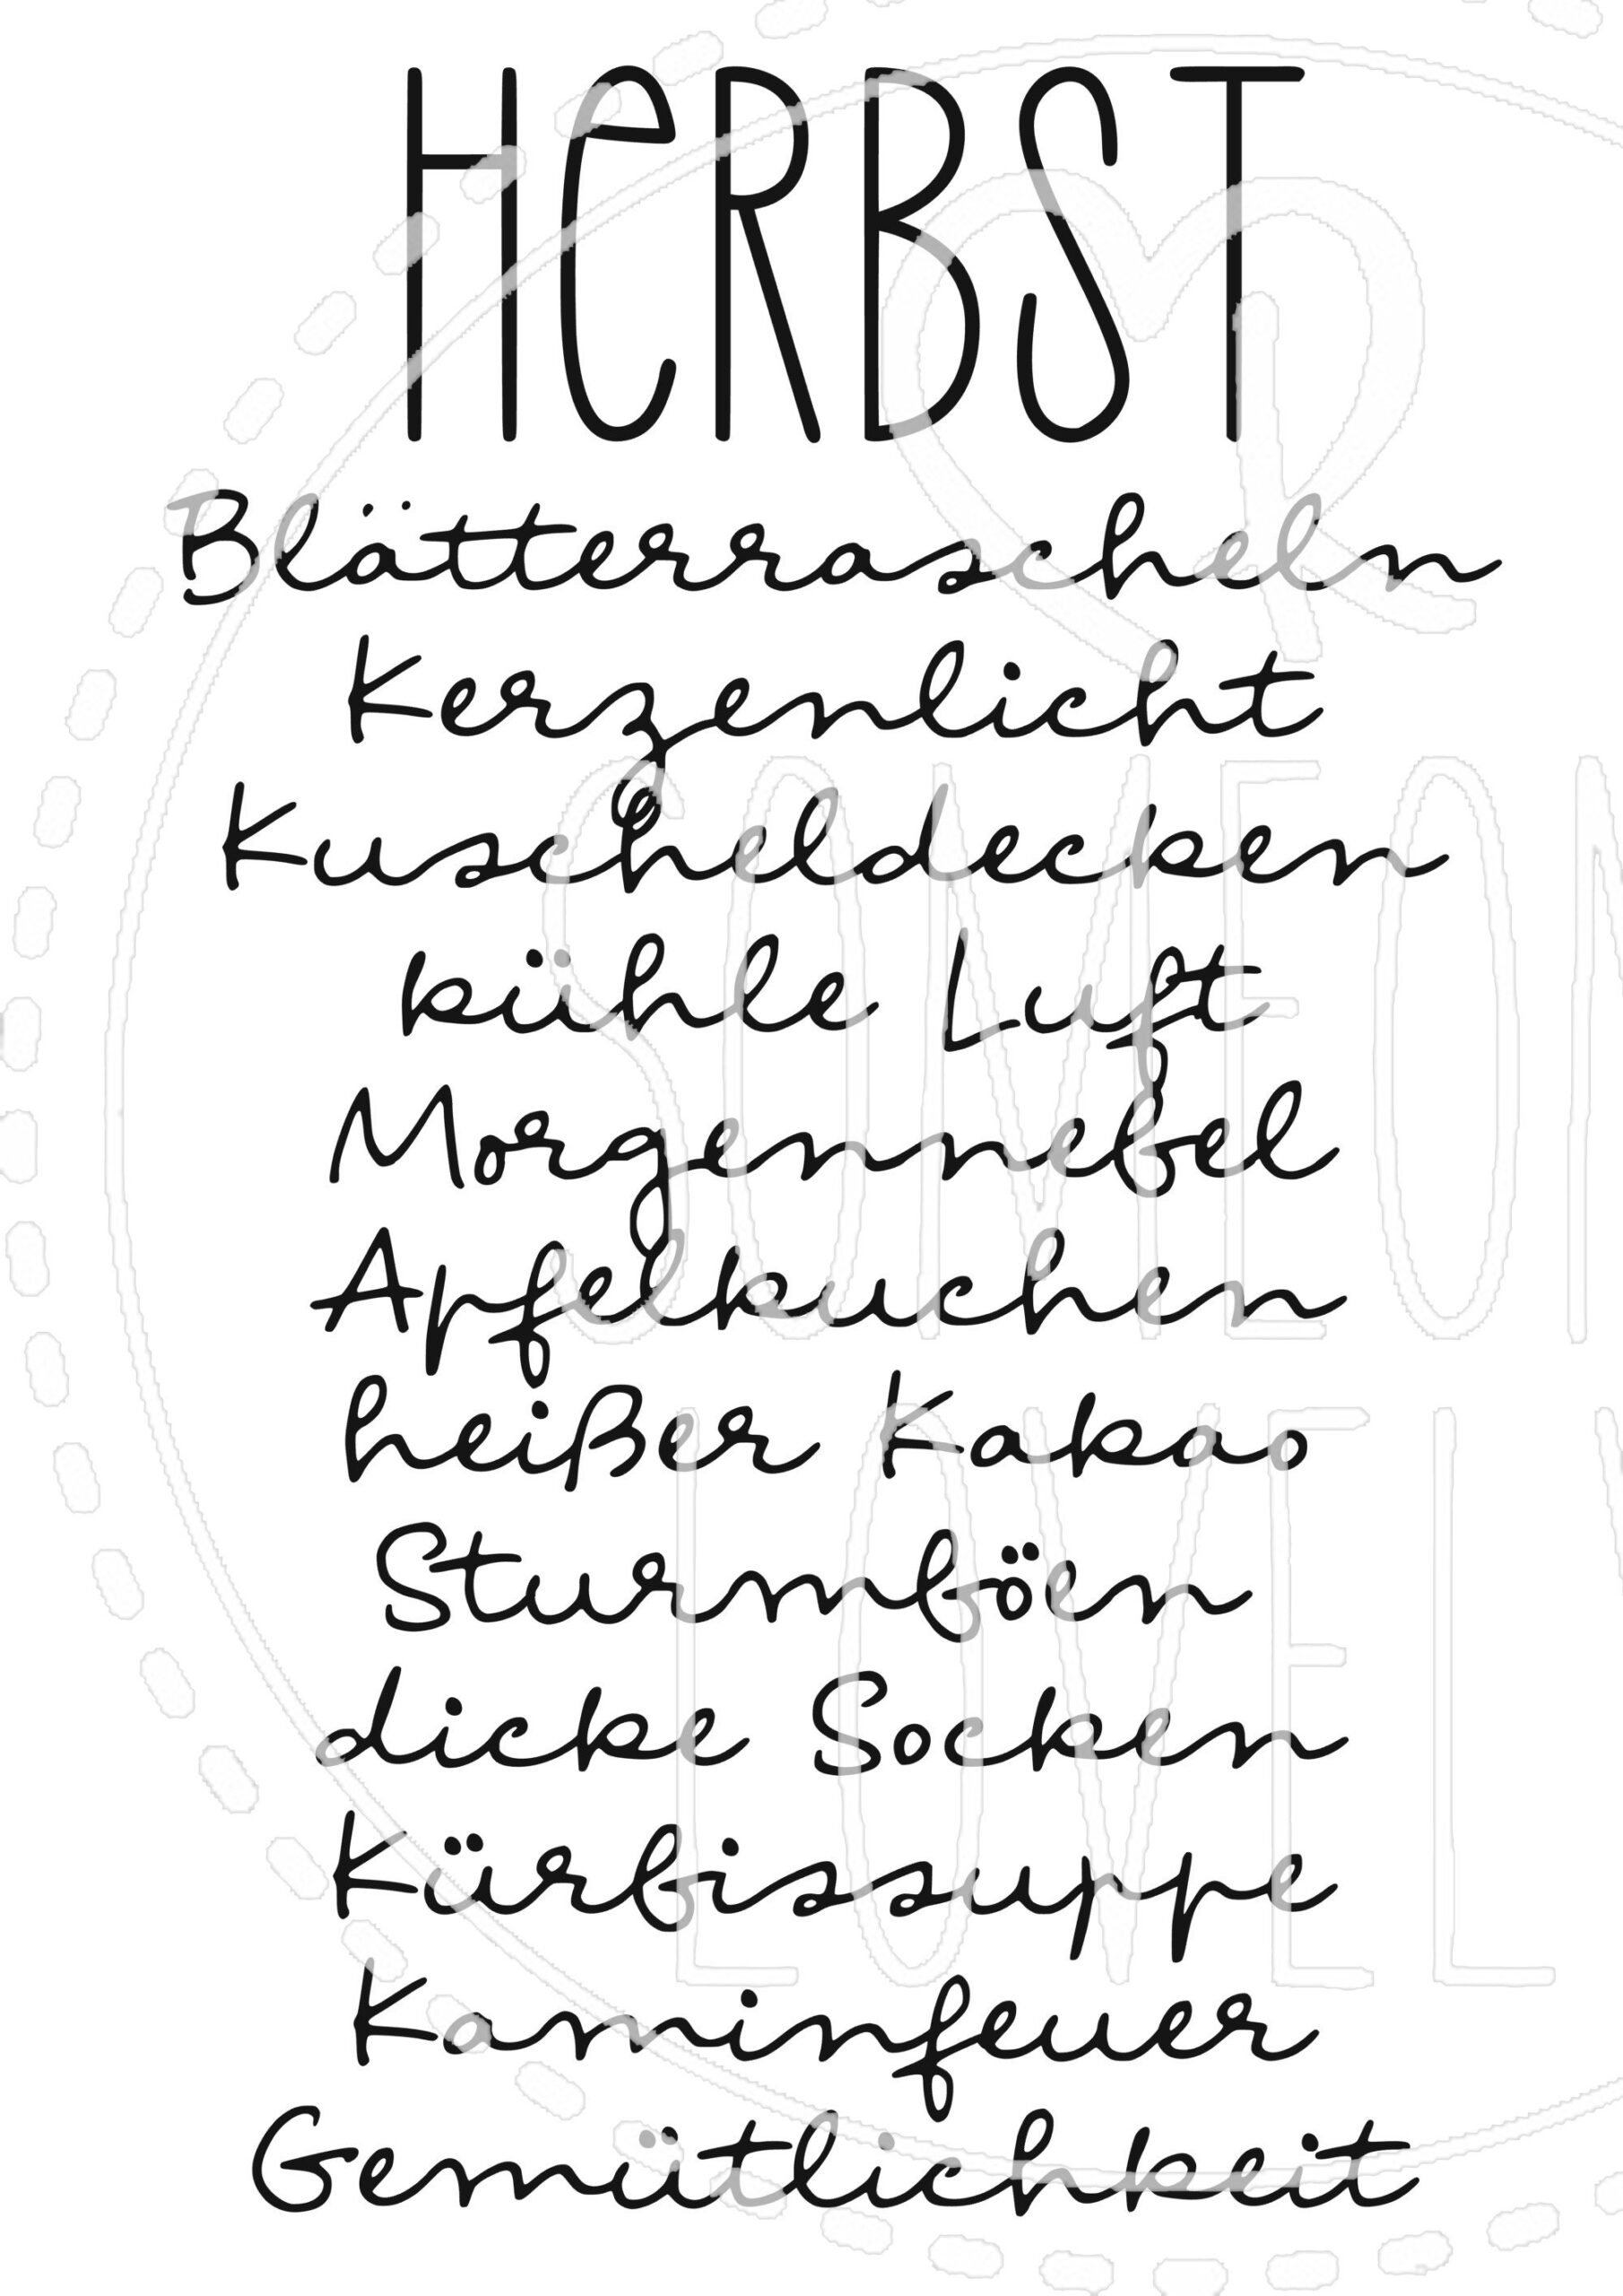 HeRBST
Blätterrascheln
Kerzenlicht
Kuscheldecken
kühle Luft
Morgennebel
Apfelkuchen
heißer Kakao
Sturmböen
dicke Socken
Kürbissuppe
Kaminfeuer
Gemütlichkeit